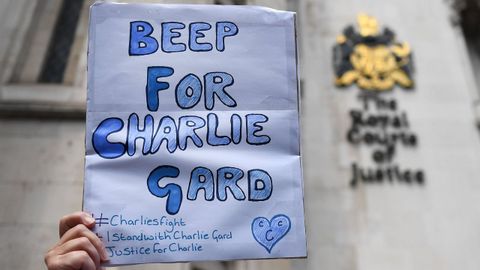 BEEP
FOR
CHARLIE
GARD
#Charliesfight
#IStandwith Charlie Gard
#Justice for Charlie
C C C
The
Royal
Courts of
Justice